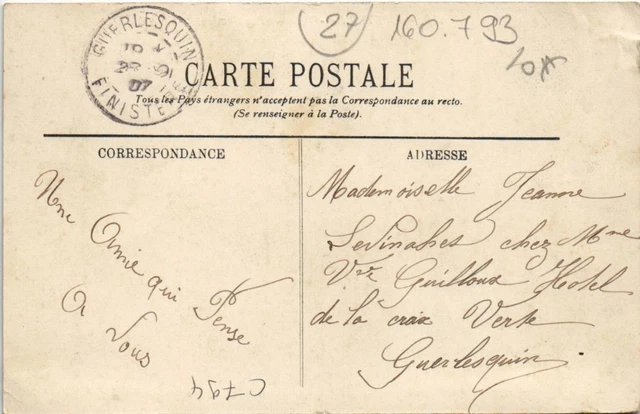 27
160.793
10*
GUERLESQUIN
07
FINISTE
CARTE POSTALE
Tous les Pays étrangers n'acceptent pas la Correspondance au recto.
(Se renseigner à la Poste).
CORRESPONDANCE
Une
Amie qui Pense
A Vous
C794
ADRESSE
Mademoiselle Jeanne
chez Mme
Vve Guilloux Hotel
de la croix Verte
Guerlesquin